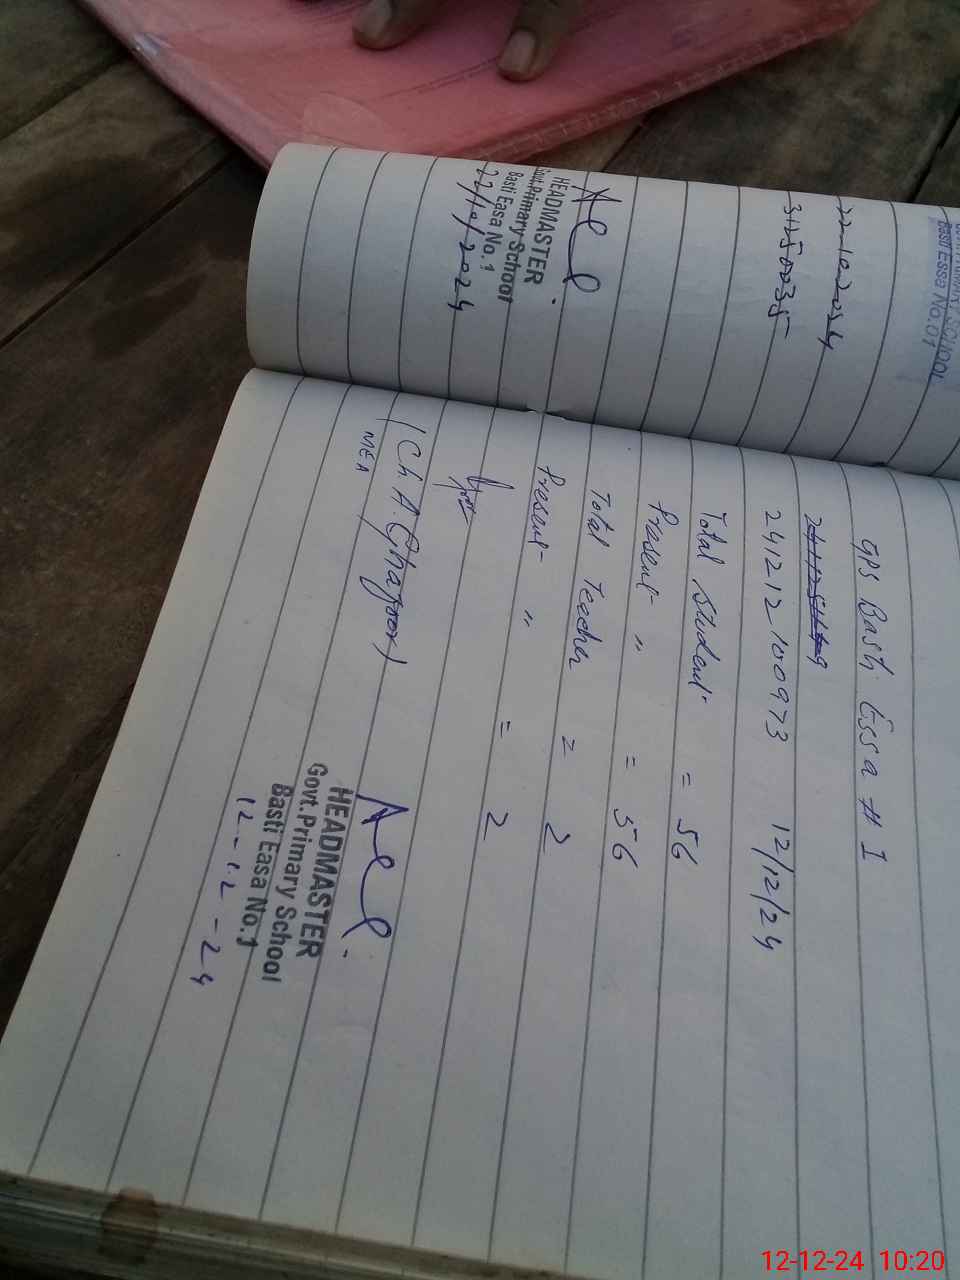 Basti Essa No.01
22-10-2024
31250035
HEADMASTER
Govt.Primary School
Basti Easa No.1
22/10/2024
GPS Basti Essa # 1
241212100973 12/12/24
Total Student = 56
Present " = 56
Total Teacher = 2
Present " = 2
(Ch A. Ghafoor)
MEA
HEADMASTER
Govt.Primary School
Basti Easa No.1
12-12-24
12-12-24 10:20